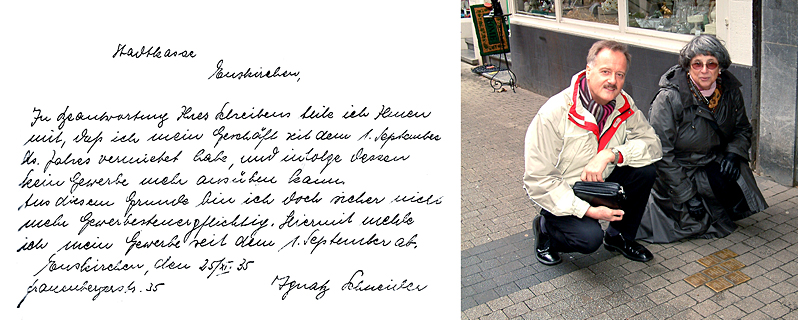 Stadtkasse
Euskirchen,
In Beantwortung Ihres Schreibens teile ich Ihnen
mit, daß ich mein Geschäft seit dem 1. September
ds. Jahres vermietet habe, und infolge dessen
kein Gewerbe mehr ausüben kann.
Aus diesem Grunde bin ich doch sicher nicht
mehr Gewerbesteuerpflichtig. Hiermit melde
ich mein Gewerbe seit dem 1. September ab.
Euskirchen, den 25/XI. 35
Frauenbergerstr. 35 Ignatz Schreiber